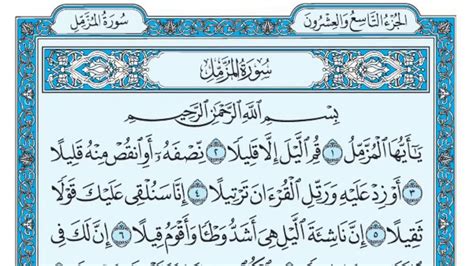 سُورَةُ المُزَّمِّلِ
الجُزْءُ التَّاسِعُ وَالعِشْرُونَ
سُورَةُ المُزَّمِّلِ
بِسْمِ اللَّهِ الرَّحْمَٰنِ الرَّحِيمِ
يَٰٓأَيُّهَا ٱلْمُزَّمِّلُ ١ قُمِ ٱلَّيْلَ إِلَّا قَلِيلًا ٢ نِّصْفَهُۥٓ أَوِ ٱنقُصْ مِنْهُ قَلِيلًا
٣ أَوْ زِدْ عَلَيْهِ وَرَتِّلِ ٱلْقُرْءَانَ تَرْتِيلًا ٤ إِنَّا سَنُلْقِى عَلَيْكَ قَوْلًا
ثَقِيلًا ٥ إِنَّ نَاشِئَةَ ٱلَّيْلِ هِىَ أَشَدُّ وَطْـًٔا وَأَقْوَمُ قِيلًا ٦ إِنَّ لَكَ فِى